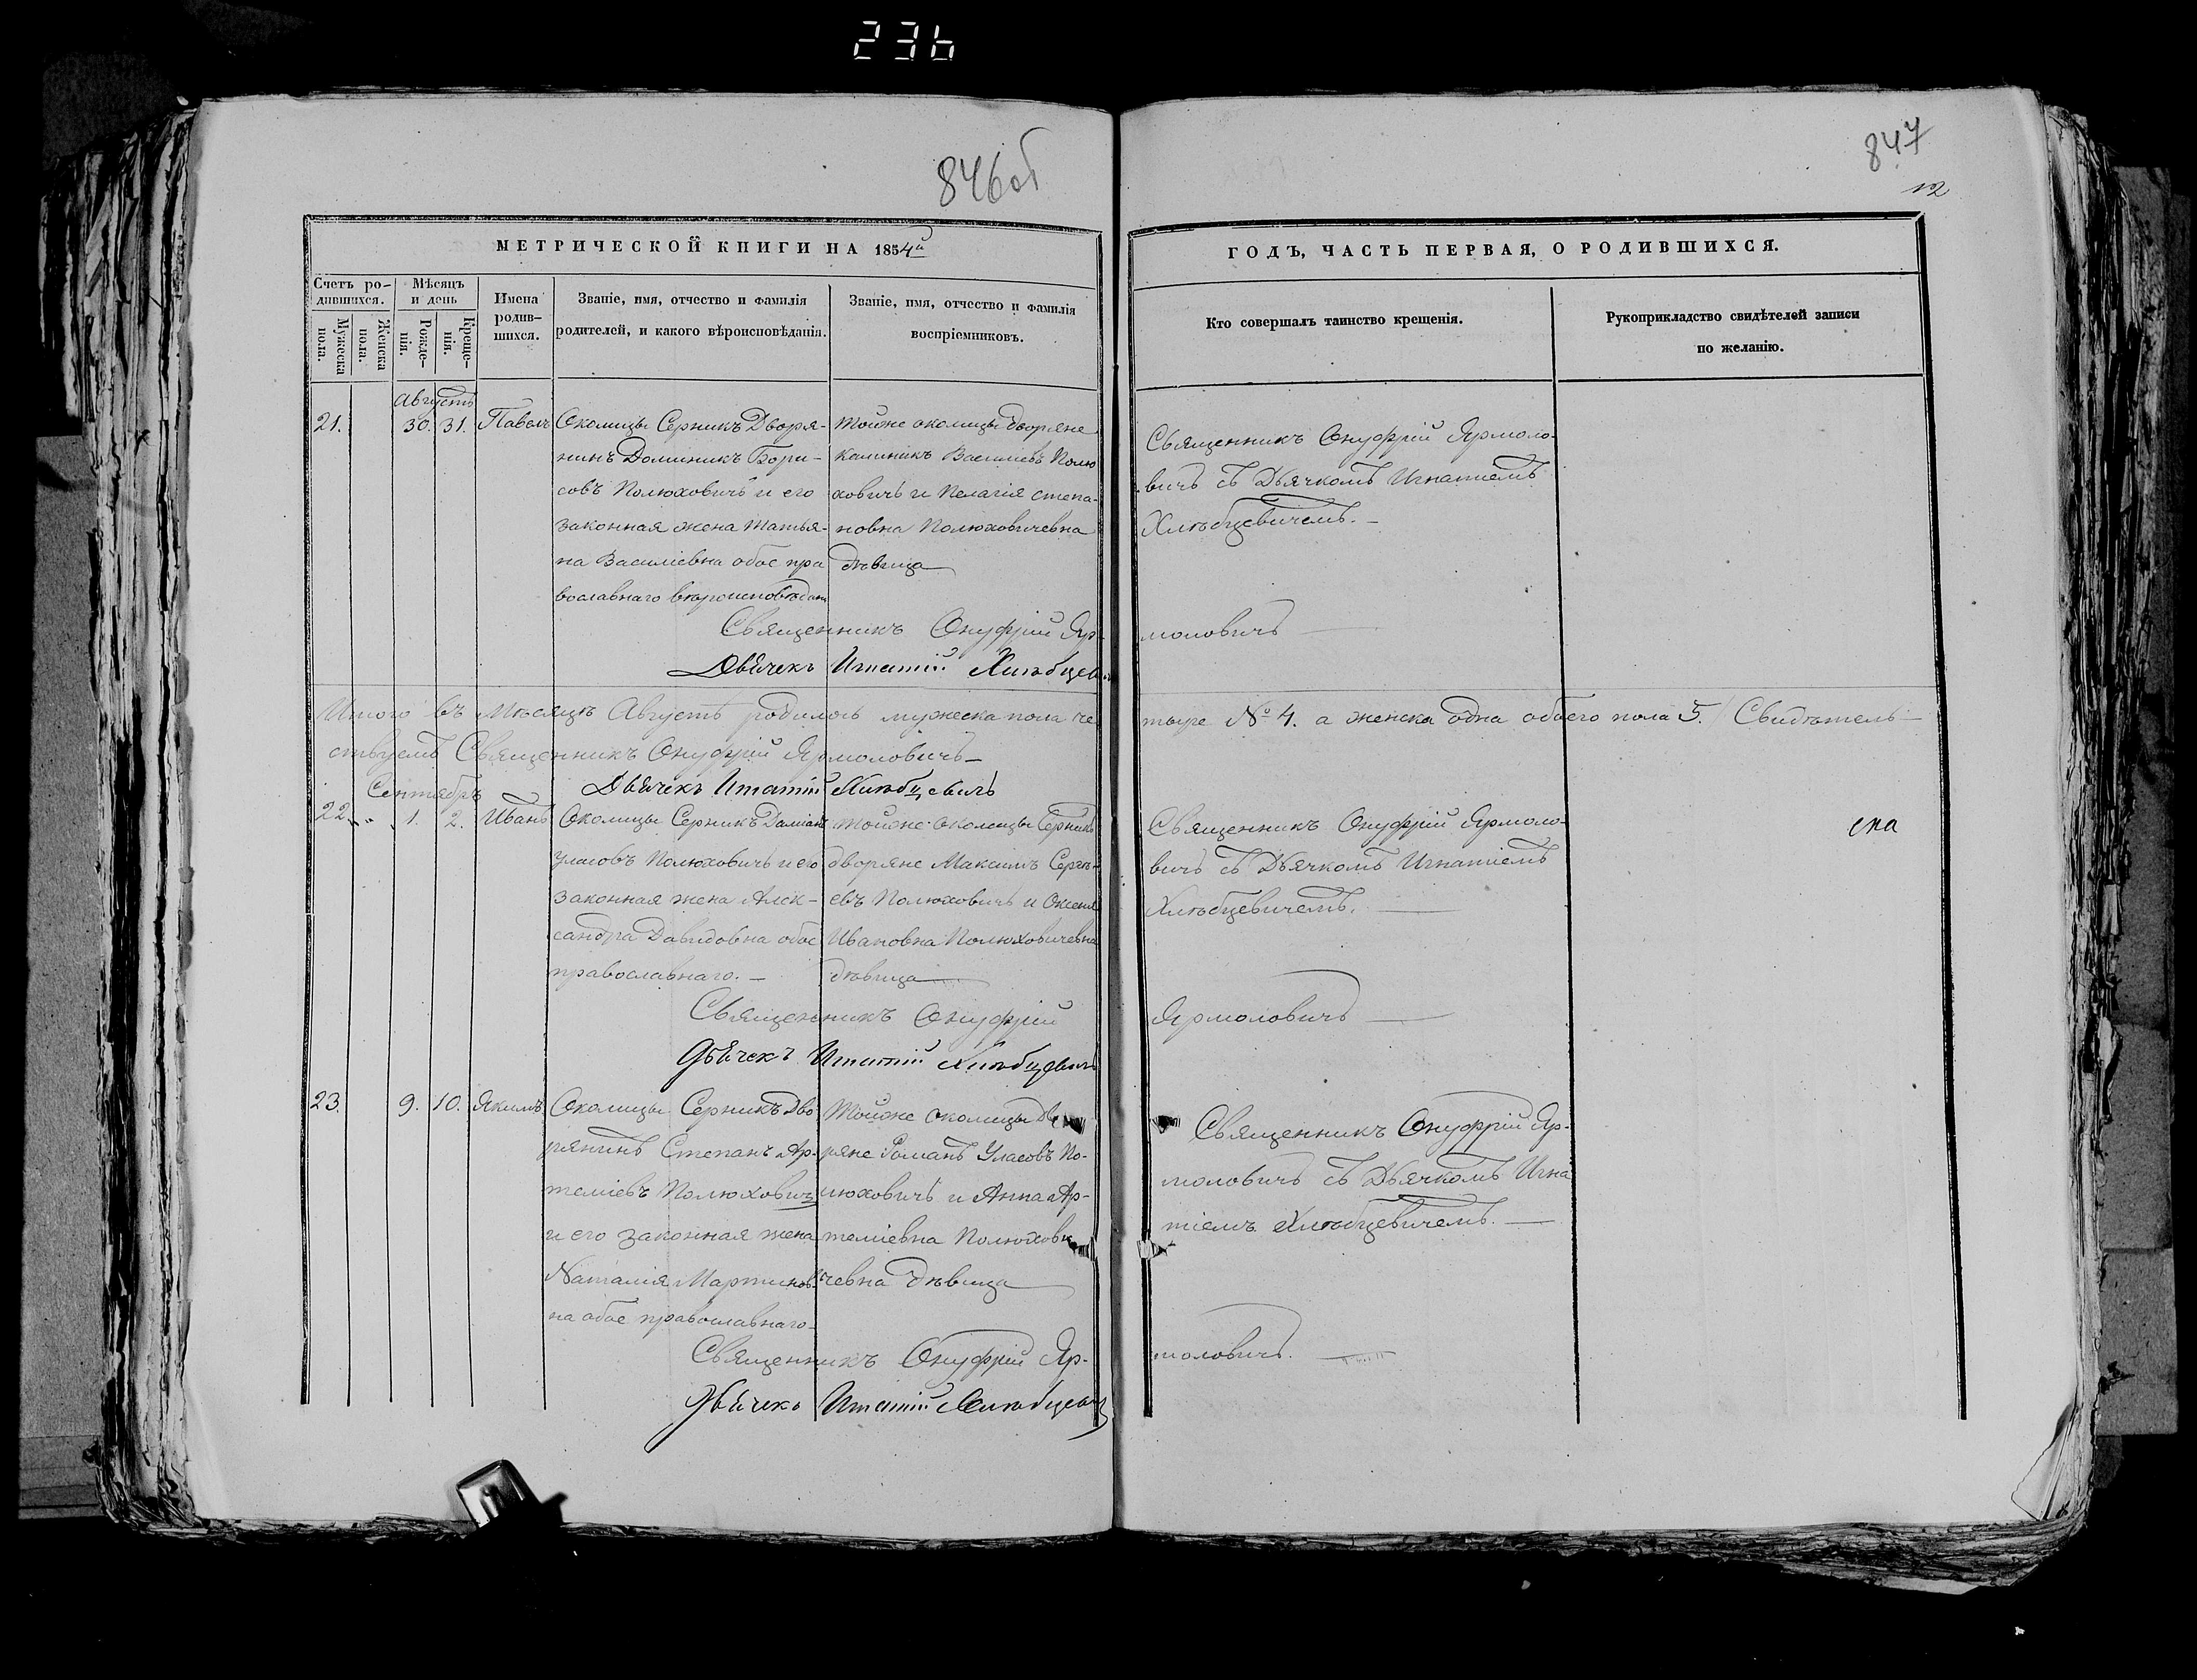 236
846об
847
12
МЕТРИЧЕСКОЙ КНИГИ НА 1854й
ГОДЪ, ЧАСТЬ ПЕРВАЯ, О РОДИВШИХСЯ.
Счетъ ро-
дившихся.
Мужеска
пола.
Женска
пола.
Мѣсяцъ
и день
Рожде-
нія.
Креще-
нія.
Имена
родив-
шихся.
Званіе, имя, отчество и фамилія
родителей, и какого вѣроисповѣданія.
Званіе, имя, отчество и фамилія
воспріемниковъ.
Кто совершалъ таинство крещенія.
Рукоприкладство свидѣтелей записи
по желанію.
Августъ
21.
30. 31.
Павелъ
Околицы Серникъ Дворя-
нинъ Доминикъ Бори-
совъ Полюховичъ и его
законная жена Татья-
на Василіевна обое пра
вославнаго вѣроисповѣдані
тойже околицы дворяне
Калиникъ Василіевъ Полю
ховичъ и Пелагія Степа-
новна Полюховичевна
дѣвица
Священникъ Онуфрій Ярмоло-
вичъ съ Дьячкомъ Игнатіемъ
Хлѣбцевичемъ.
Священникъ Онуфрій Яр-
моловичъ
Дьячекъ Игнатій Хлѣбцеви
Итого въ Мѣсяцѣ Августѣ родилось мужеска пола че
тыре № 4. а женска одна обоего пола 5. Свидѣтель-
ствуемъ Священникъ Онуфрій Ярмоловичъ
Дьячекъ Игнатій Хлѣбцевичъ
Сентябрь
22.
1. 2.
Иванъ
Околицы Серникъ Даміанъ
Уласовъ Полюховичъ и его
законная жена Алек-
сандра Давидовна обое
православнаго.
тойже околицы Серникъ
дворяне Максимъ Сергѣ-
евъ Полюховичъ и Оксенія
Ивановна Полюховичевна
дѣвица
Священникъ Онуфрій Ярмоло-
вичъ съ Дьячкомъ Игнатіемъ
Хлѣбцевичемъ.
Священникъ Онуфрій
Ярмоловичъ
Дьячекъ Игнатій Хлѣбцевичъ
23.
9. 10.
Якимъ
Околицы Серникъ Дво
рянинъ Степанъ Ар-
теміевъ Полюховичъ
и его законная жена
Наталія Мартинов-
на обое православнаго
Тойже околицы Дво
ряне Романъ Уласовъ По-
люховичъ и Анна Ар-
теміевна Полюхови
чевна дѣвица
Священникъ Онуфрій Яр-
моловичъ съ Дьячкомъ Игна
тіемъ Хлѣбцевичемъ.
Священникъ Онуфрій Яр-
моловичъ.
Дьячекъ Игнатій Хлѣбцевичъ